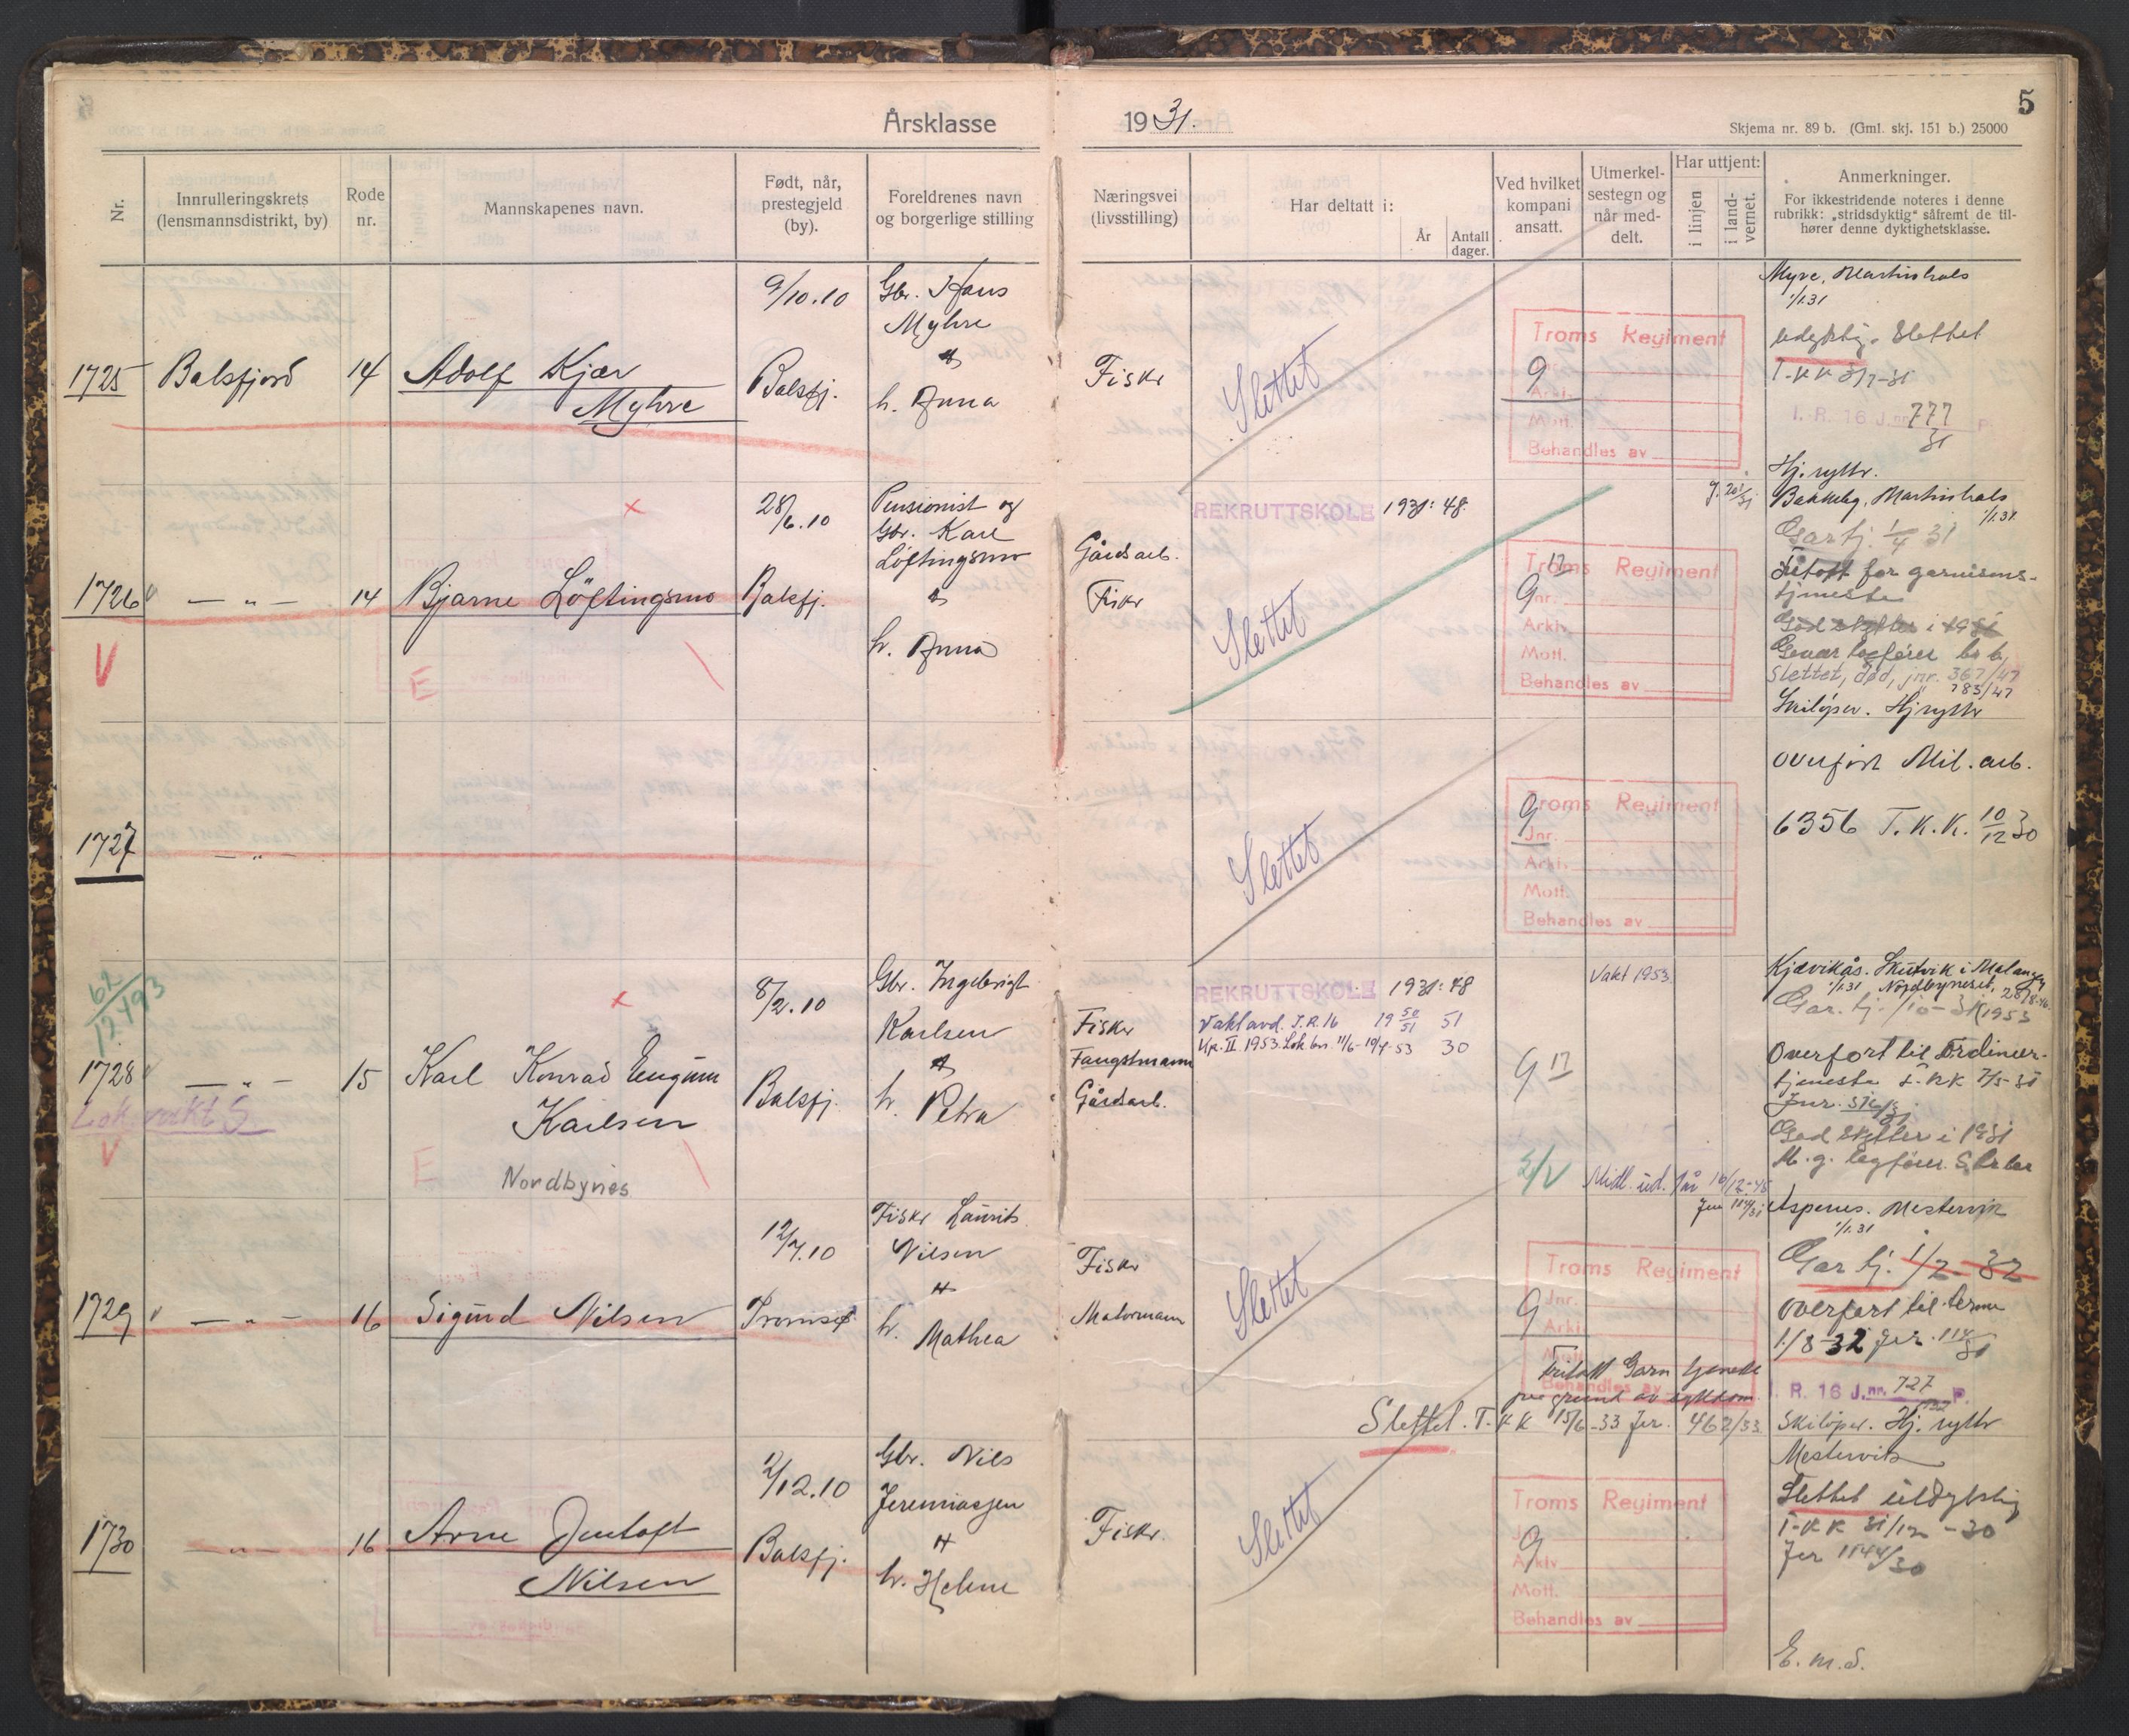 5
Årsklasse 1931.
Skjema nr. 89 b. (Gml. skj. 151 b.) 25000
Nr.
Innrulleringskrets
(lensmannsdistrikt, by)
Rode
nr.
Mannskapenes navn.
Født, når,
prestegjeld
(by).
Foreldrenes navn
og borgerlige stilling
Næringsvei
(livsstilling)
Har deltatt i:
År
Antall
dager.
Ved hvilket
kompani
ansatt.
Utmerkel-
sestegn og
når med-
delt.
Har uttjent:
i linjen
i land-
vernet.
Anmerkninger.
For ikkestridende noteres i denne
rubrikk: „stridsdyktig“ såfremt de til-
hører denne dyktighetsklasse.
1725 Balsfjord 14 Adolf Kjær
Myhre
9/10.10
Balsfj.
Gbr. Hans
Myhre
h. Anna
Fisker
Slettet
Troms Regiment
9
Arkiv
Mott.
Behandles av
Myre, Martinshals
1/1.31
udyktig. Slettet
T-KK
I. R. 16 J.nr. 777 P.
31
1726 — „ — 14 Bjarne Löftingsmo
V
E
28/6.10
Balsfj.
Pensionist og
Gbr. Karl
Løftingsmo
h. Anna
Gårdsarb.
Fisker
REKRUTTSKOLE 1931: 48
Slettet
Troms Regiment
12
9
Jnr.
Arkiv
Mott.
Behandles av
Hj. rytter.
Bakkeby, Martinshals
1/1.31
Gartj. 1/4 31
for garnisons-
tjeneste
God skytter i 1931
Gevær lagfører
Slettet, død, jnr. 367/47
783/47
Skiløper. Hj rytter
1727 — „ —
Slettet
Troms Regiment
9
Jnr.
Arkiv
Mott.
Behandles av
overført Mil. arb.
6356 T.K.K. 10/12 30
62/12493
1728 — „ — 15 Karl Konrad Eugen
Karlsen
Nordbynes
Lok.vakt S
V
E
8/2.10
Balsfj.
Gbr. Ingebrigt
Karlsen
h. Petra
Fisker
Fangstmann
Gårdsarb.
REKRUTTSKOLE 1931: 48
Vaktavd. I.R. 16 19 50/51 51
Kp. II. 1953. Lok bn. 11/6- 53 30
9 17
Vakt 1953
Midl. ud. 1 år 10/12-45
Kjævikås. Skutvik i Malangen
1/1.31 Nordbyneset,
Gar. tj.
Overført til ordinær-
tjeneste T-KK 7/5-31
Jnr.
God skytter i 1931
M. g. lagfører.
1729 — „ — 16 Sigurd Nilsen
12/7.10
Fisker Laurits
Nilsen
h. Mathea
Fisker
Motormann
Slettet
Troms Regiment
9
Jnr.
Arkiv
Behandles av
Fritatt Garn tjeneste
på grund av sykdom
Slettet. T-KK 15/6-33 Jnr. 462/33
Aspenes. Mestervik
1/1.31
Gar tj. 1/2-32
overført til term
1/8 32 Jnr.
I. R. 16 J.nr. 727 P.
Skiløper. Hj. rytter
1730 — „ — 16 Arne Jentoft
Nilsen
2/12.10
Balsfj.
Gbr. Nils
Jeremiassen
h. Helene
Fisker.
Slettet
Troms Regiment
9
Arkiv
Mott.
Behandles av
Mestervik
Slettet udyktig
T-KK 31/12-30
Jnr 1144/30
E. m. S.